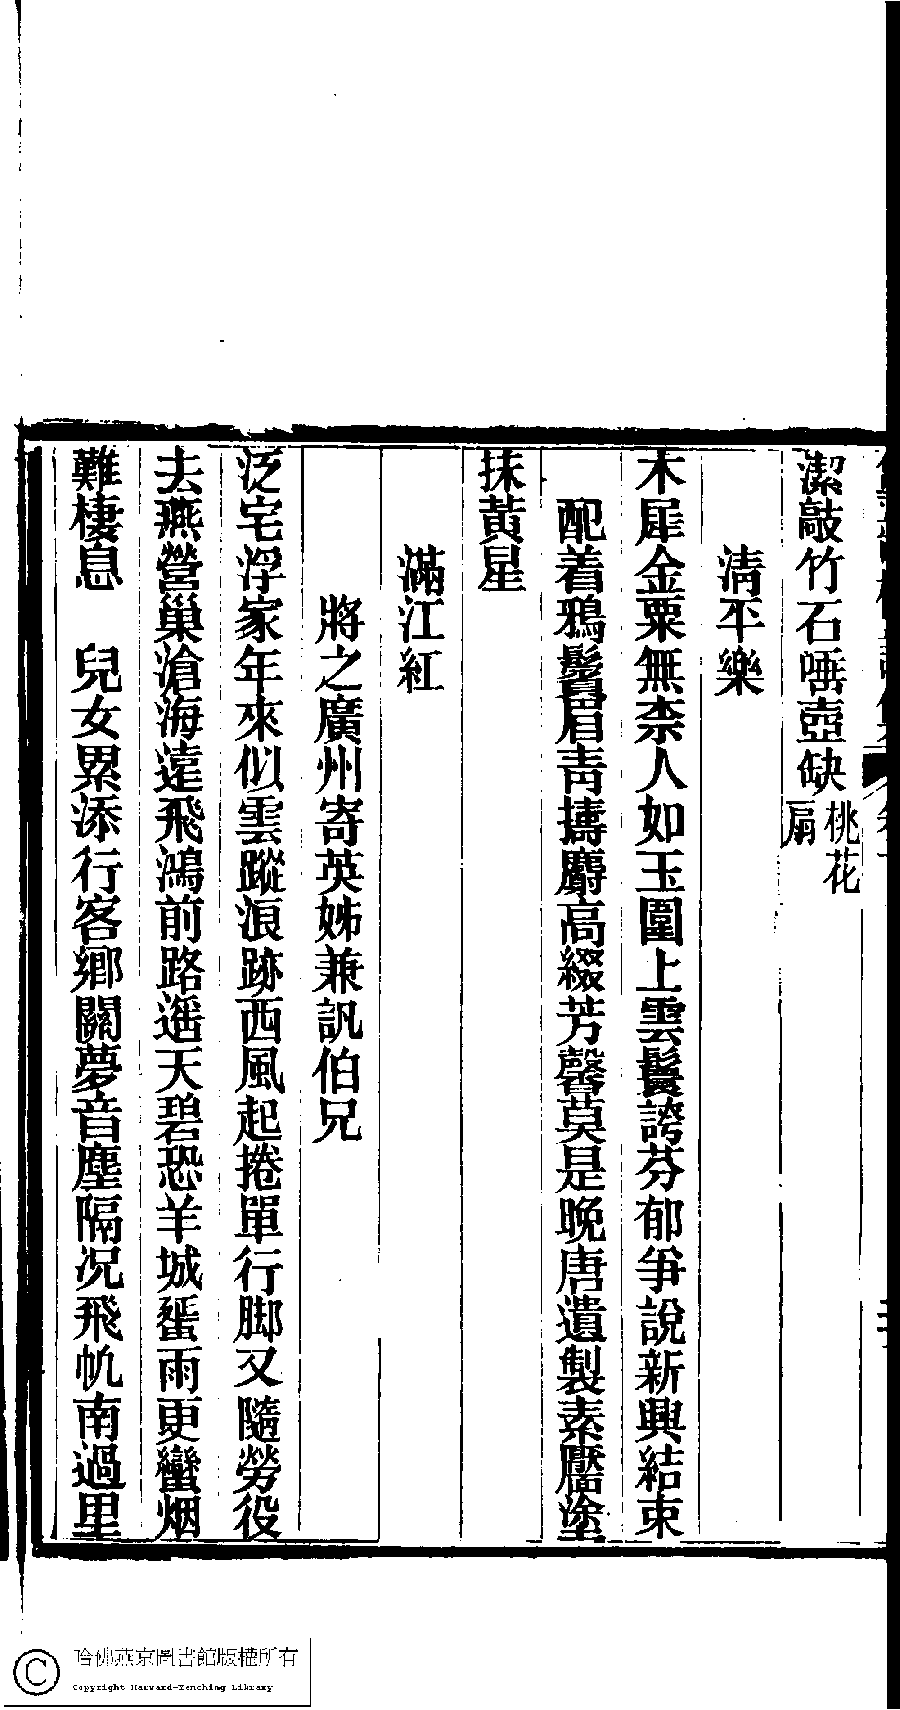 潔敲竹石唾壺缺桃花扇
清平樂
木犀金粟無柰人如玉圍上雲鬟誇芬郁爭說新興結束
配着鴉鬢眉靑摶麝高綴芳馨莫是晚唐遺製素靨塗
抹黃星
滿江紅
將之廣州寄英姊兼訊伯兄
泛宅浮家年來似雲蹤浪跡西風起捲單行脚又隨勞役
去燕營巢滄海遠飛鴻前路遙天碧恐羊城蜑雨更蠻烟
難棲息　兒女累添行客鄉關夢音塵隔况飛帆南過里
哈佛燕京圖書館版權所有
Copyright Harvard-Yenching Library